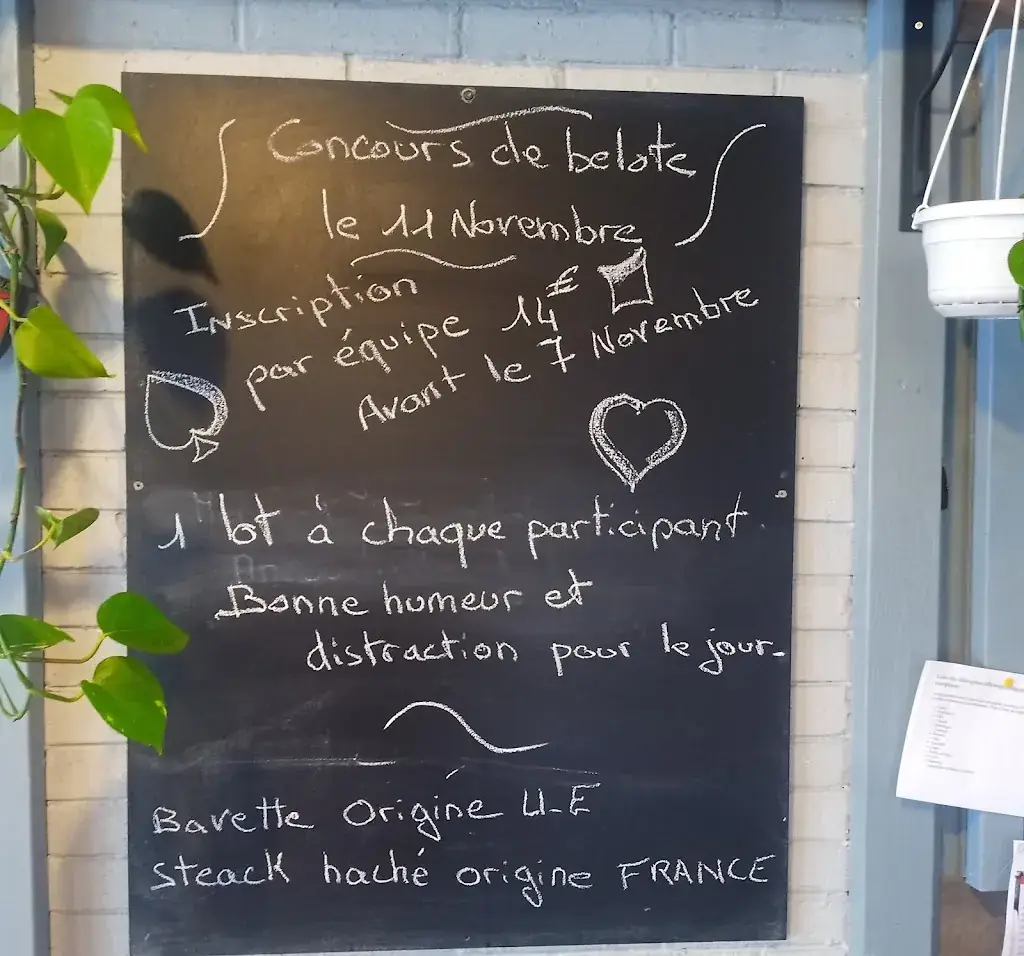 Concours de belote
le 11 Novembre
Inscription
par équipe 14€
Avant le 7 Novembre
1 lot à chaque participant.
Bonne humeur et
distraction pour le jour.
Bavette Origine U-E
Steack haché origine FRANCE